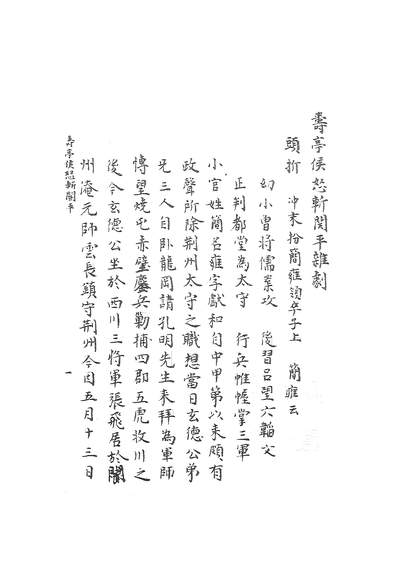 壽亭侯怒斬関平雜劇
頭折　冲末扮簡雍領卒子上　簡雍云
幼小曽将儒業攻　後習吕望六韜文
正判都堂為太守　行兵帷幄掌三軍
小官姓簡名雍字獻和自中甲第以来頗有
政聲所除荆州太守之職想當日玄德公弟
兄三人自卧龍岡請孔明先生来拜為軍師
博望燒屯赤壁鏖兵勦捕四郡五虎收川之
後今玄德公坐於西川三将軍張飛居於閬
州淹元帥雲長鎮守荆州今因五月十三日
壽亭侯怒斬關平
一